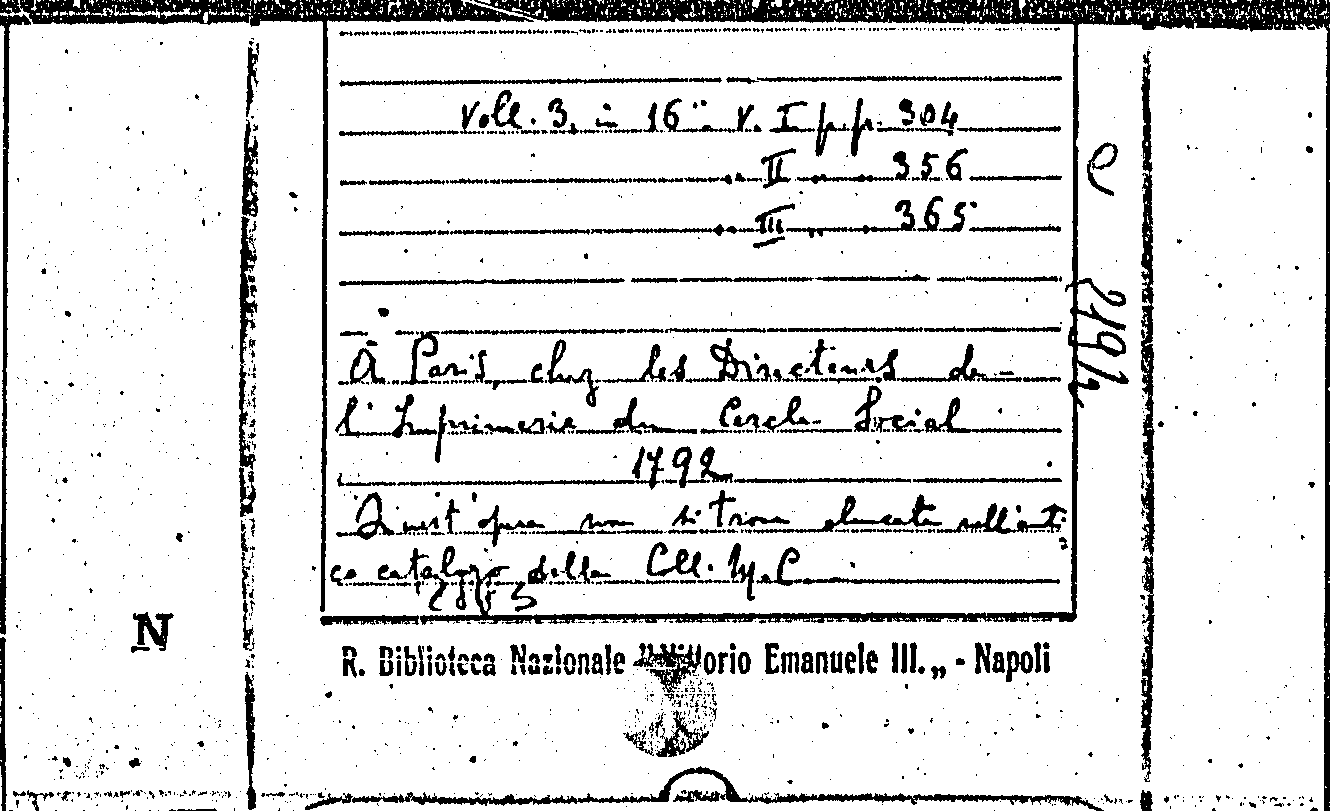 Voll. 3, in 16° V. I pp. 304
" II " " 356
" III " " 365
e
À Paris, chez les Directeurs de
l'Imprimerie du Cercle Social
1792
Quest'opera non si trova elencata nell'anti
co catalogo della Coll. M. C.
N
R. Biblioteca Nazionale "Vittorio Emanuele III." - Napoli